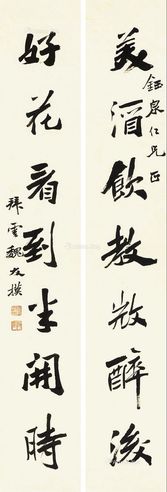 美酒飲教微醉後
鈺泉仁兄正
好花看到半開時
拜雲魏友棐